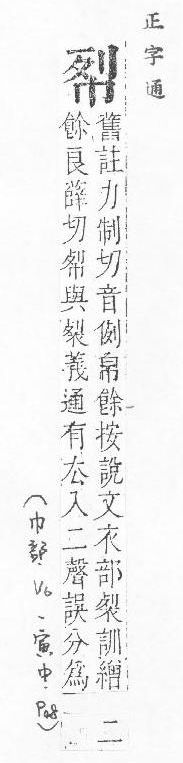 正字通
㡂
舊註力制切音例帛餘按說文衣部裂訓繒
餘良薛切㡂與裂義通有去入二聲誤分爲二
(巾部 V6、寅中、P28)